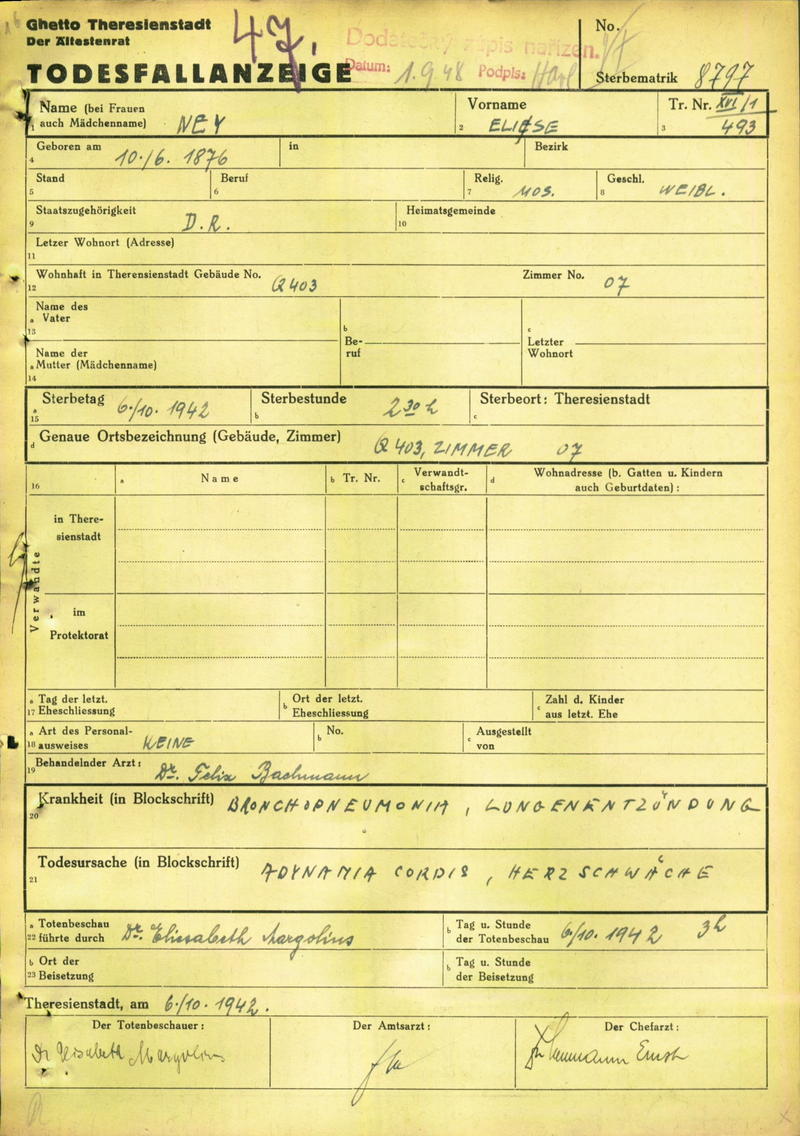 Ghetto Theresienstadt
Der Ältestenrat
47.
Dodatečný zápis nařízen.
Datum: 1.9.48 Podpis:
No.
TODESFALLANZEIGE
Sterbematrik 8797
Name (bei Frauen
1 auch Mädchenname) NEY
Vorname
2 ELIESE
Tr. Nr. XVI/1
3 493
Geboren am
4 10./6. 1876
in
Bezirk
Stand
5
Beruf
6
Relig.
7 MOS.
Geschl.
8 WEIBL.
Staatszugehörigkeit
9 D.R.
Heimatsgemeinde
10
Letzer Wohnort (Adresse)
11
Wohnhaft in Therensienstadt Gebäude No.
12 Q 403
Zimmer No. 07
Name des
a Vater
13
b
Be-
ruf
c
Letzter
Wohnort
Name der
a Mutter (Mädchenname)
14
Sterbetag
a
15 6./10. 1942
Sterbestunde
b 2 30 h
Sterbeort: Theresienstadt
c
d Genaue Ortsbezeichnung (Gebäude, Zimmer) Q 403, ZIMMER 07
16
a Name
b Tr. Nr.
c Verwandt-
schaftsgr.
d Wohnadresse (b. Gatten u. Kindern
auch Geburtdaten):
Verwandte
in There-
sienstadt
im
Protektorat
a Tag der letzt.
17 Eheschliessung
b Ort der letzt.
Eheschliessung
c Zahl d. Kinder
aus letzt. Ehe
a Art des Personal-
18 ausweises KEINE
b No.
c Ausgestellt
von
Behandelnder Arzt:
19 Dr. Felix Bachmann
Krankheit (in Blockschrift) BRONCHOPNEUMONIA, LUNGENENTZÜNDUNG
20
Todesursache (in Blockschrift) ADYNAMIA CORDIS, HERZSCHWÄCHE
21
a Totenbeschau
22 führte durch Dr. Elisabeth Margolius
b Tag u. Stunde
der Totenbeschau 6/10. 1942 3h
b Ort der
23 Beisetzung
b Tag u. Stunde
der Beisetzung
Theresienstadt, am 6./10. 1942.
Der Totenbeschauer:
Dr Elisabeth Margolius
Der Amtsarzt:
Der Chefarzt:
Ernst